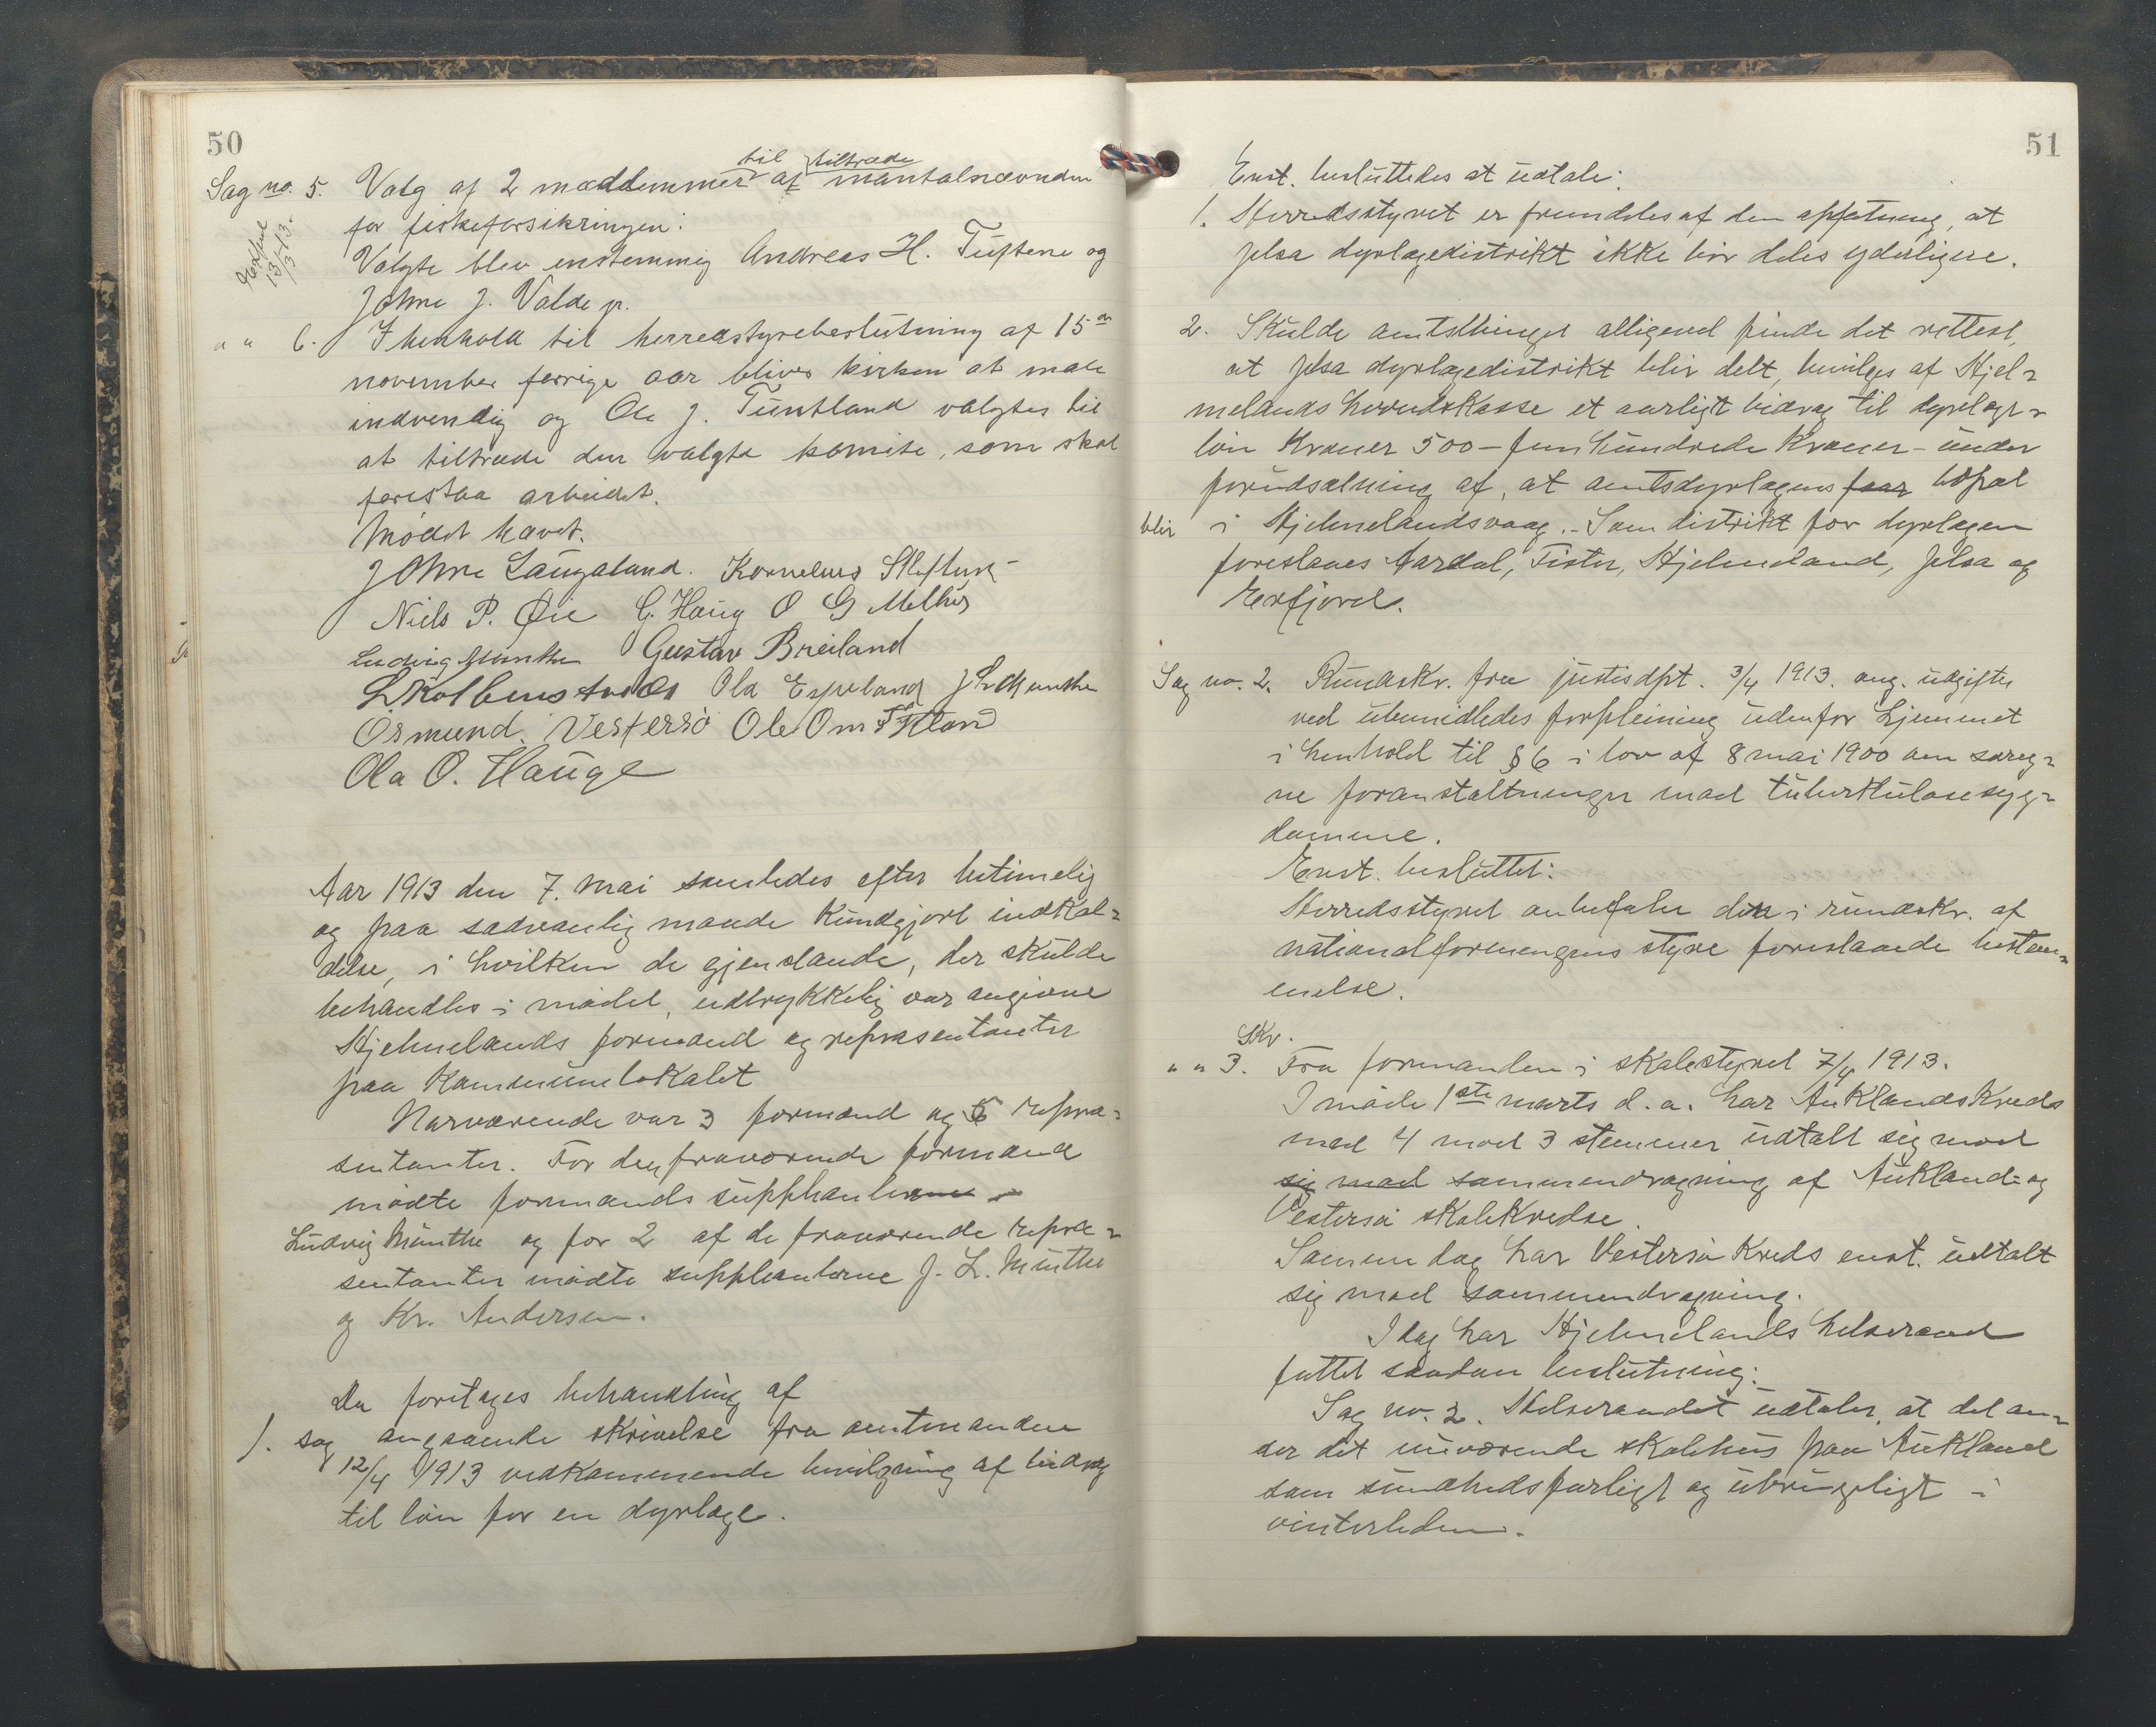 50
til tiltræde
Sag no. 5. Valg af 2 meddemmer af mantalsnævnden
for fiskeforsikringen:
Exp
13/3-13.
Valgte blev enstemmig Andreas H. Tuftene og
Johne J. Valde jr.
" " 6. I henhold til herredstyrebeslutning af 15de
november forrige aar blives kirken at male
indvendig og Ole J. Tuntland valgtes til
at tiltræde den valgte komite, som skal
forestaa arbeidet.
Mødet hævet.
Johne Laugaland. Kornelius Skiftun
Niels P. Øie G. Haug O G Melhus
Ludvig Munthe Gustav Breiland
L Kolbenstvedt Ola Espeland J L Munthe
Osmund. Vestersø Ole Om
Ola O. Hauge
Aar 1913 den 7. mai samledes efter betimelig
og paa sædvanlig maade kundgjort indkal=
delse, i hvilken de gjenstande, der skulde
behandles i mødet, udtrykkelig var angivne
Hjelmelands formænd og repræsentanter
paa kommunelokalet
Nærværende var 3 formænd og 6 repræ=
sentanter. For den fraværende formand
mødte formands supphanterne
Ludvig Munthe og for 2 af de fraværende repræ=
sentanter mødte supphanterne J. L. Munthe
og Kr. Andersen.
Da foretages behandling af
1. sag angaaende skrivelse fra amtmanden
12/4 1913 vedkommende bevilgning af bidrag
til løn for en dyrlæge.
51
Enst. besluttedes at udtale:
1. Herredsstyret er fremdeles af den opfatning, at
Jelsa dyrlægedistrikt ikke bør deles yderligere.
2. Skulde amtsthinget alligevel finde det rettest,
at Jelsa dyrlægedistrikt blir delt, bevilges af Hjel=
melands herredskasse et aarligt bidrag til dyrlæge=
løn Kroner 500 - fem hundrede Kroner - under
forudsætning af, at amtsdyrlægens faar bopæl
blir i Hjelmelandsvaag. - Som distrikt for dyrlægen
foreslaaes Aardal, Fister, Hjelmeland, Jelsa og
Erfjord.
Sag no. 2. Rundskr. fra justisdpt. 3/4 1913. ang. udgifter
ved ubemidledes forpleining udenfor hjemmet
i henhold til § 6 i lov af 8 mai 1900 om særeg=
ne foranstaltninger mod tuberkuløse syg=
domme.
Enst. besluttet:
Herredsstyret anbefaler den i rundskr. af
nationalforeningens styre foreslaaede bestem=
melse.
Skr.
" " 3. Fra formanden i skolestyret 7/4 1913.
I møde 1ste marts d. a. har Auklands Kreds
med 4 mod 3 stemmer udtalt sig mod
sig mod sammendragning af Aukland= og
Vestersø skolekredse.
Samme dag har Vestersø Kreds enst. udtalt
sig mod sammendragning.
I dag har Hjelmelands helseraad
fattet saadan beslutning:
Sag no. 2. Helseraadet udtaler, at det an=
ser det nuværende skolehus paa Aukland
som sundhedsfarligt og ubrugeligt i
vintertiden.